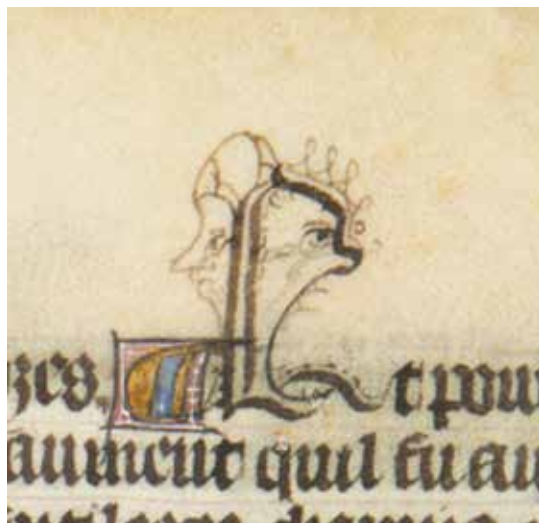 zes. Et pour
aument quil fu au